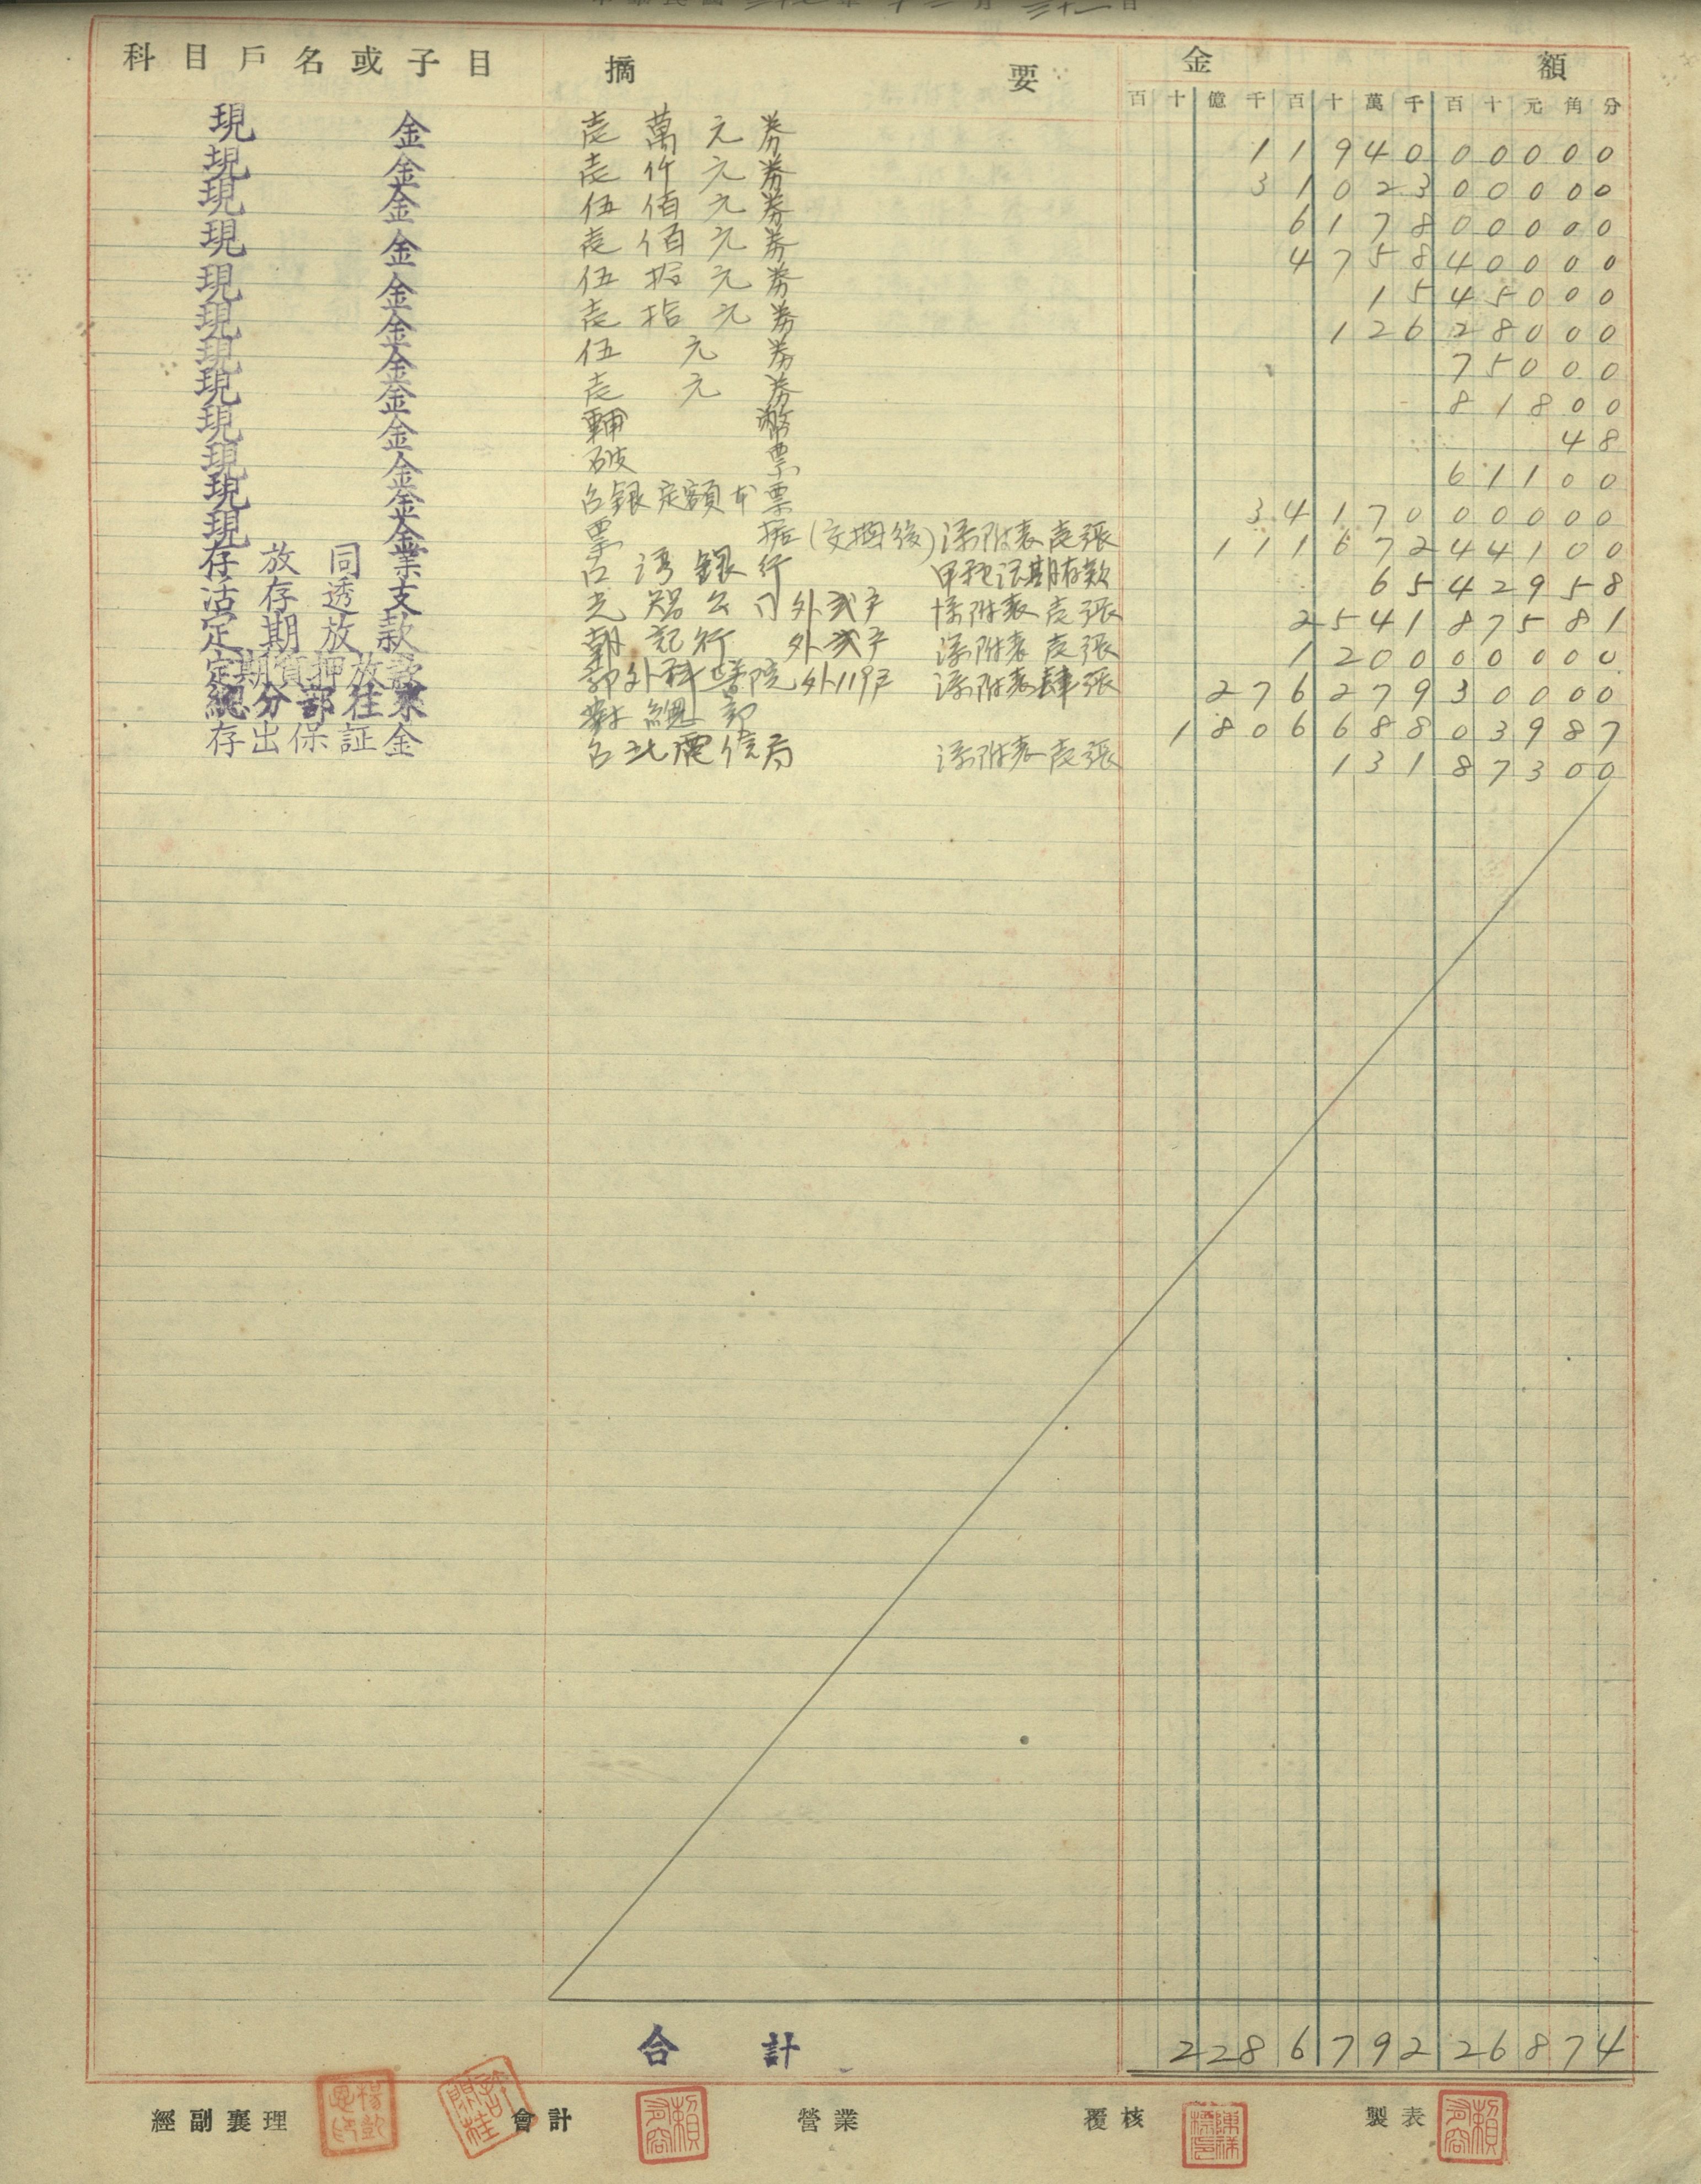 科目戶名或子目 摘要 金額
百十億千百十萬千百十元角分
現金 壱萬元券 1194000000 0
現金 壱仟元券 31023000000
現金 伍佰元券 617800000
現金 壱佰元券 475840000
現金 伍拾元券 1545000
現金 壱拾元券 12628000
現金 伍元券 75000
現金 壱元券 81800
現金 輔幣 48
現金 破票 61100
現金 台銀定額本票 3417000000
現金 票据(交換後)添附表壱張 11167244100
存放同業 台湾銀行 甲種活期存款 65442958
活存透支 公司外弍戸 添附表壱張 254187581
定期放款 朝記行 外弍戸 添附表壱張 120000000
定期質押放款 郭外科醫院外119戸 添附表肆張 27627930000
總分部往來 對總部 180668803987
存出保証金 台北電信局 添附表壱張 13187300
合計 228679226874
經副襄理 會計 營業 覆核 製表